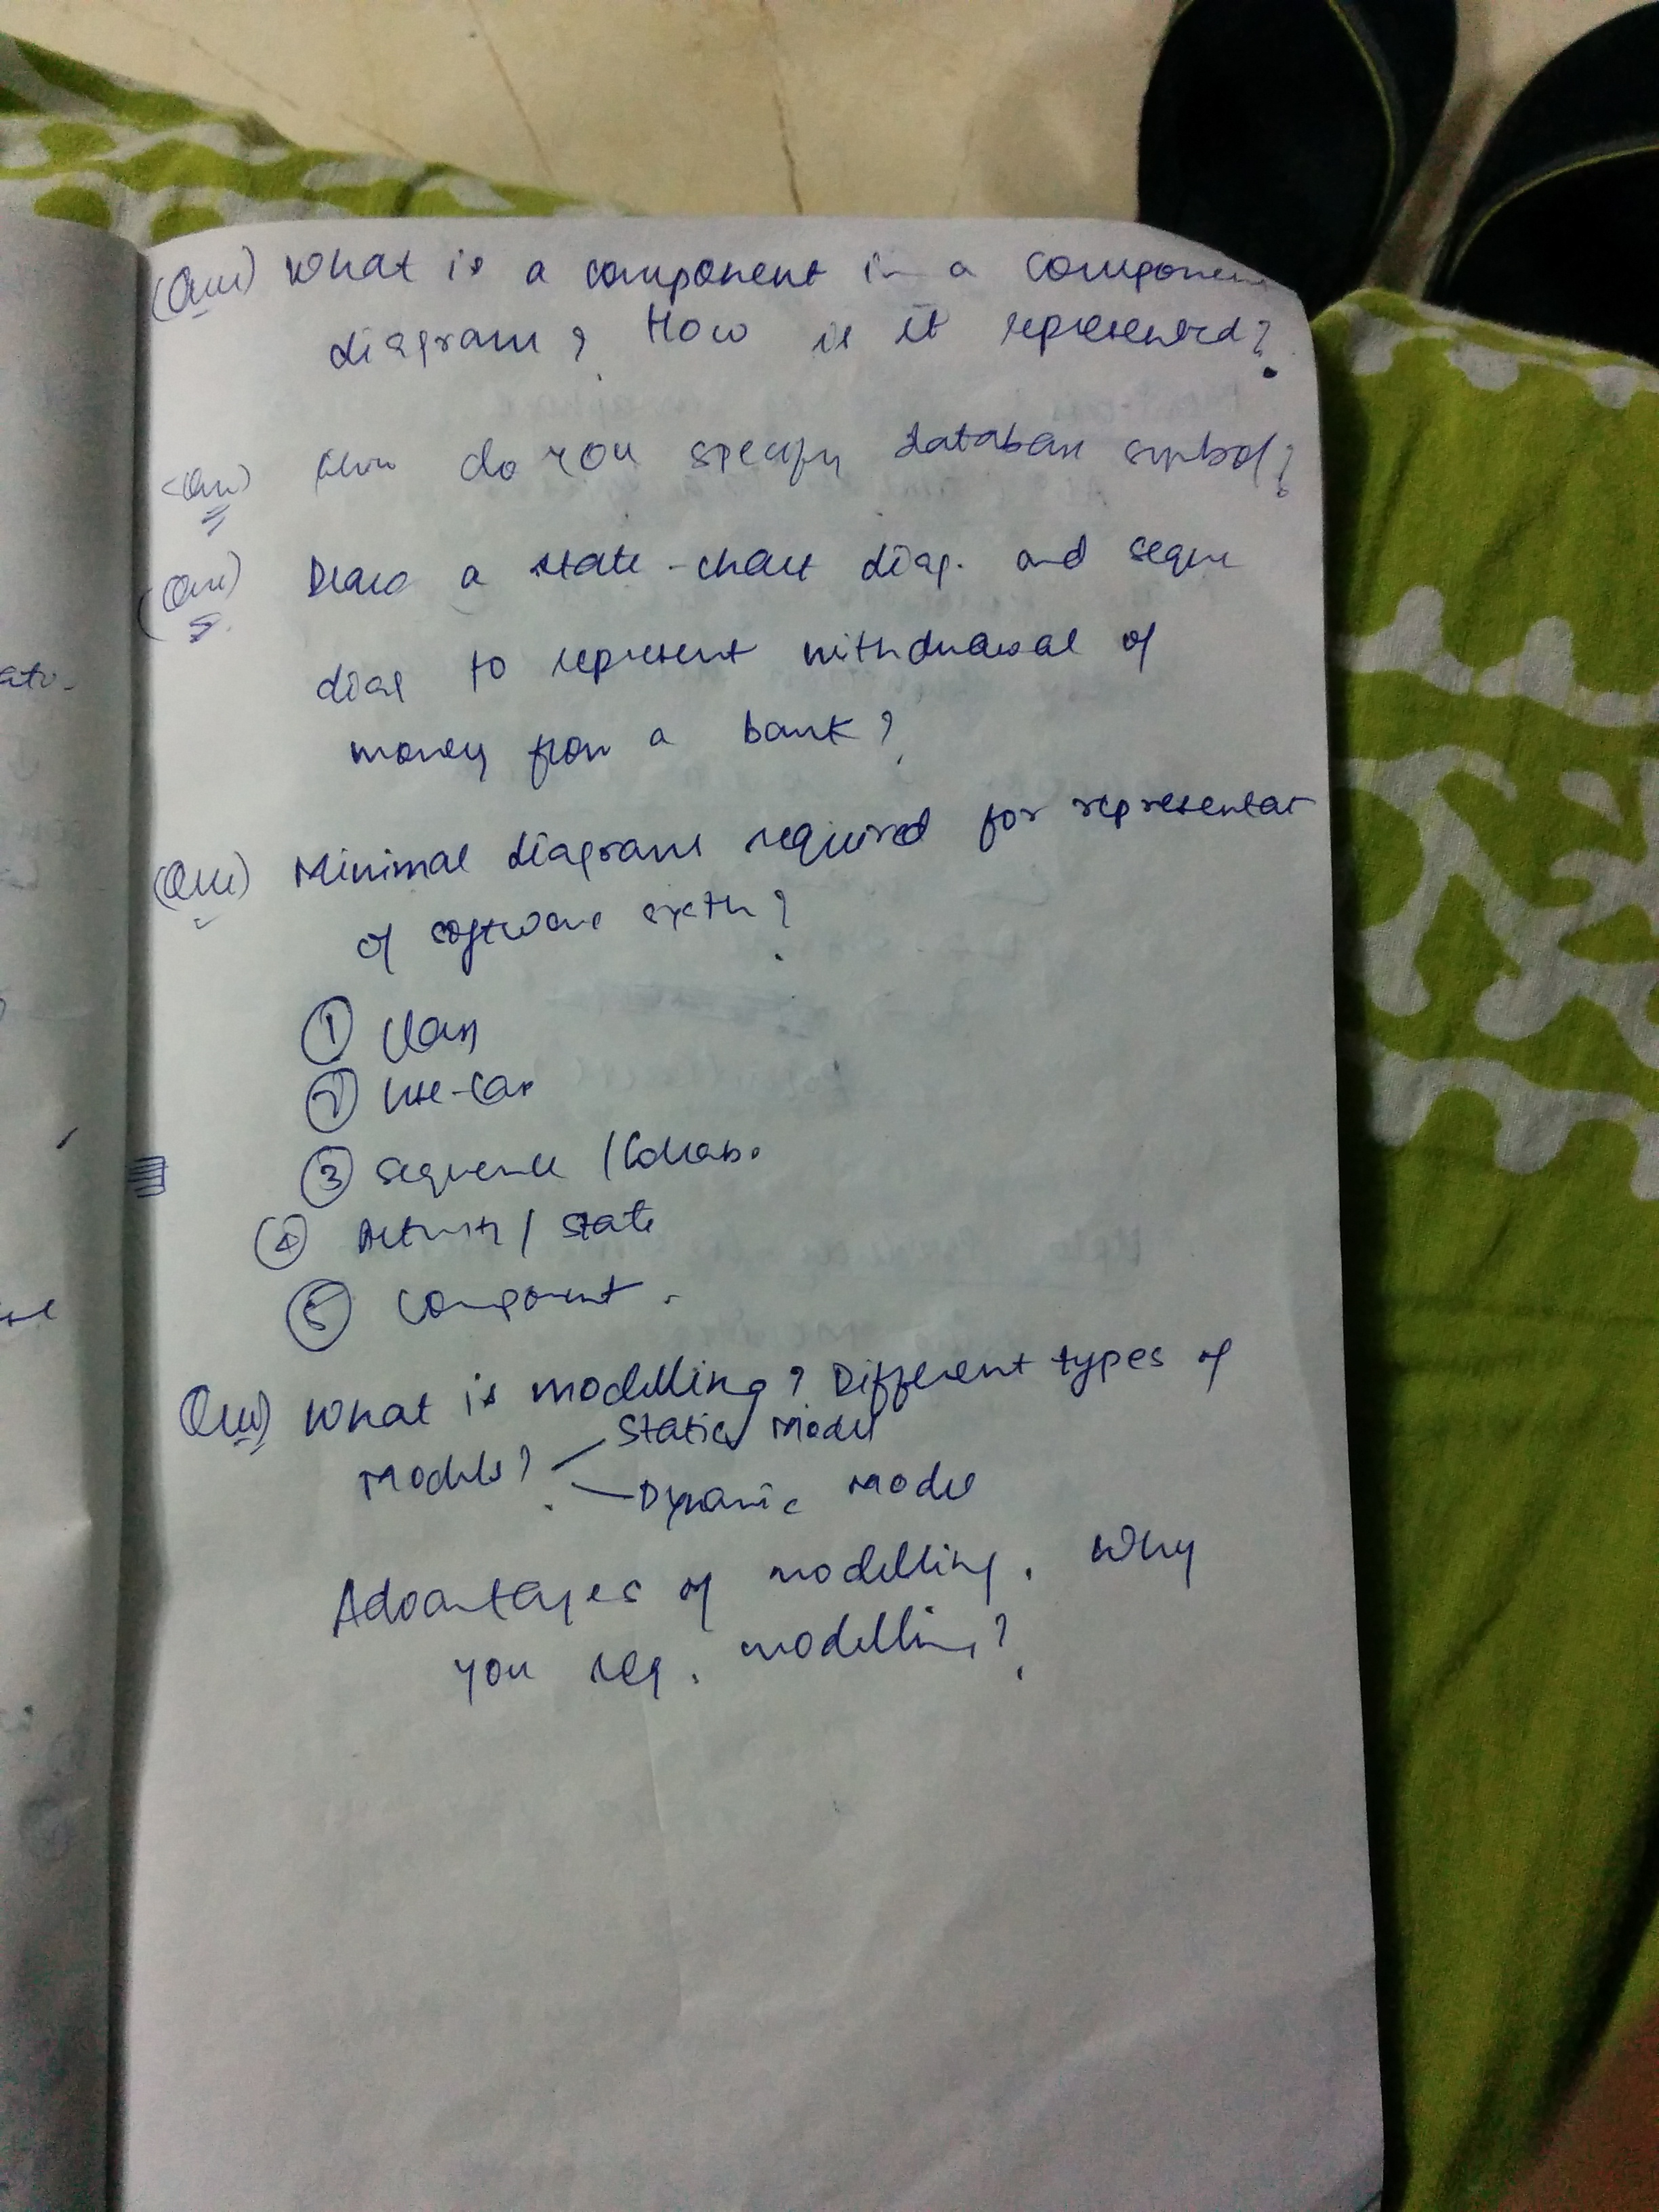 (Que) What is a component in a componen
diagram? How is it represented?
(Que) How do you specify database symbol?
(Que) Draw a state-chart diag. and seque
diag to represent withdrawal of
money from a bank?
(Que) Minimal diagrams required for representat
of software system?
① Class
② Use-Case
③ Sequence / Collab.
④ Activity / State
⑤ Component.
Que) What is modelling? Different types of
Models? Static Model
Dynamic Model
Advantages of modelling. Why
you req. modelling?